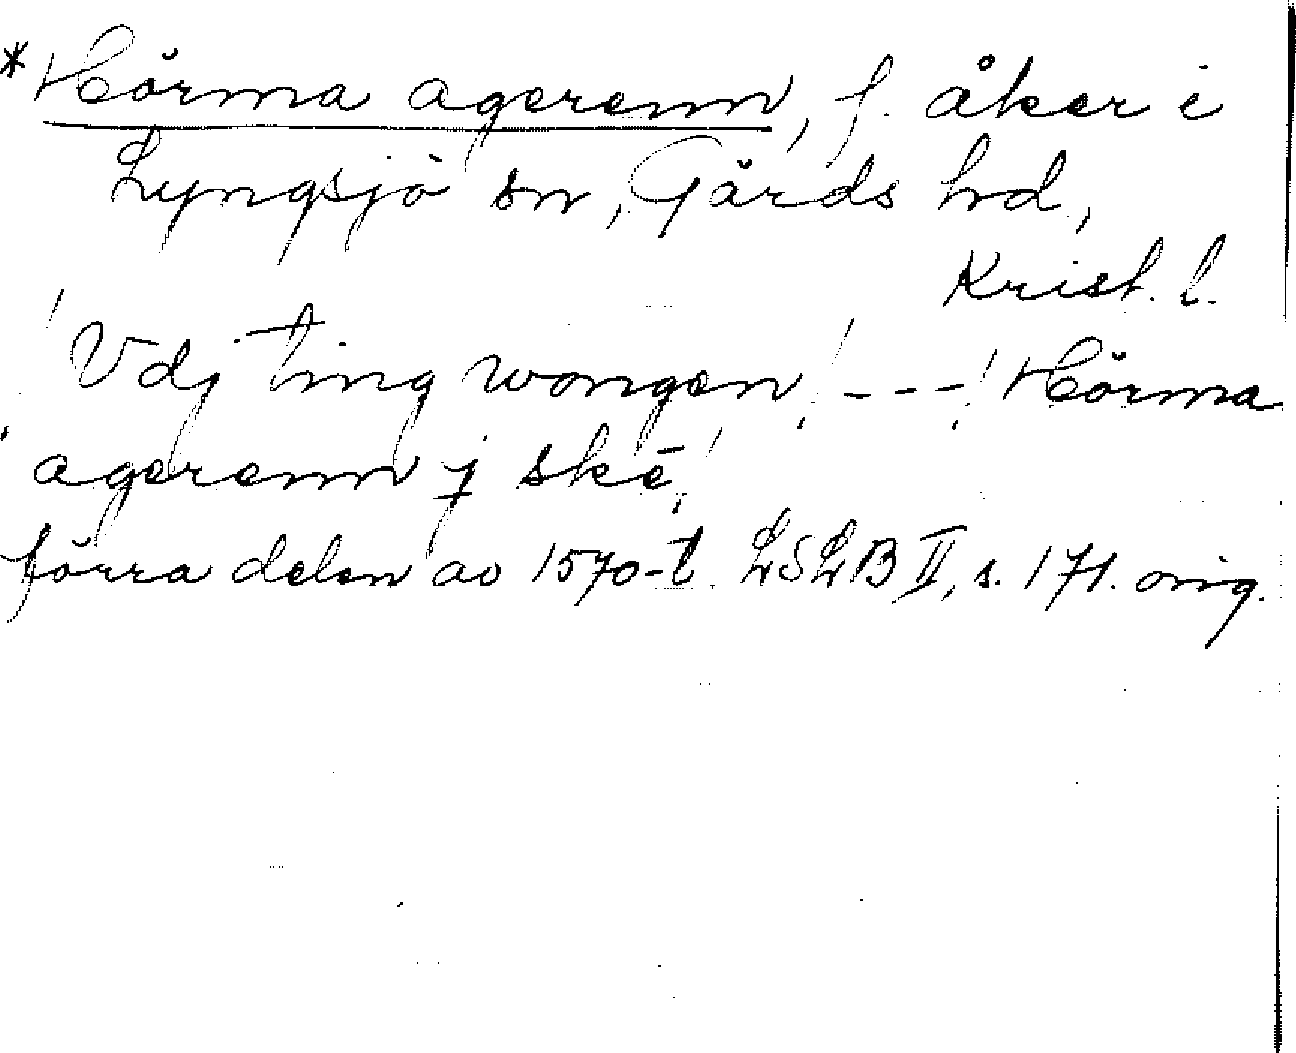 *Hörma agerenn, f. åker i
Lyngsjö sn, Gärds hd,
Krist. l.
'Vdj ting wongen' --- 'Hörma
agerenn j skē'
förra delen av 1570-t. LSLB II, s. 171. orig.